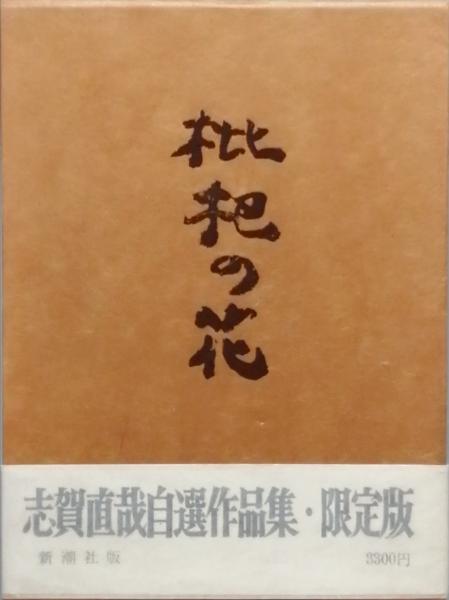 枇杷の花
志賀直哉自選作品集・限定版
新潮社版
3300円